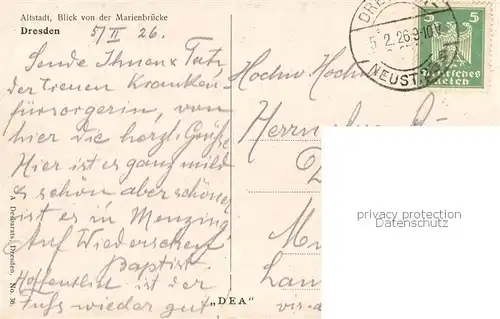 Altstadt, Blick von der Marienbrücke
Dresden
5/II 26.
Sende Ihnen &
der treuen Kranken-
fürsorgerin, von
hier die herzl. Grüße
Hier ist es ganz mild
& schön aber schöner
ist es in Menzing
Auf Wiedersehen
Baptist
Hoffentlich ist der
Fuß wieder gut!
A Dekourats, Dresden. No. 36.
„DEA"
DRE
5.2.26.9-10V
NEUST
5 5
Deutsches
Reich
Hochw. Hochw.
Herrn
privacy protection
Datenschutz
vis-a